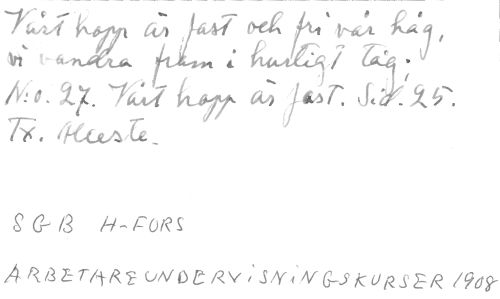 Vårt hopp är fast och fri vår håg,
vi vandra fram i hurtigt tåg.
N:o. 27. Vårt hopp är fast. Sid. 25.
Tx. Alceste.
SGB H-FORS
ARBETAREUNDERVISNINGSKURSER 1908